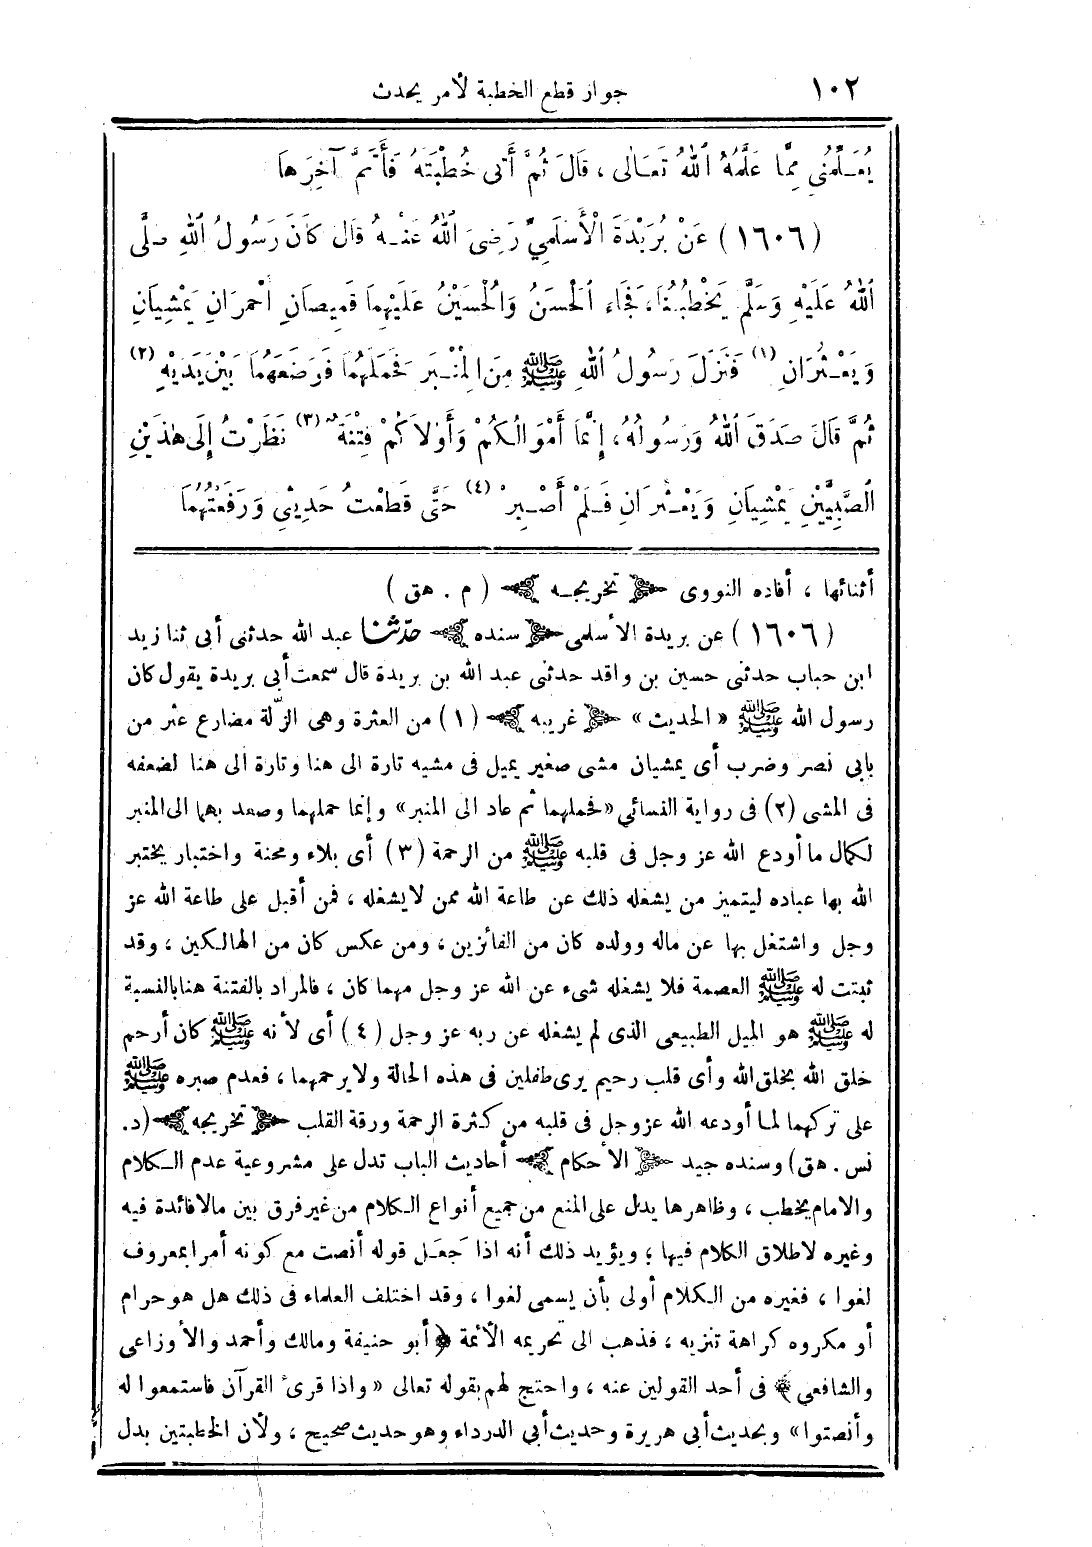 ١٠٢ جواز قطع الخطبة لأمر يحدث
يُعَلِّمُنِي مِمَّا عَلَّمَهُ ٱللهُ تَعَالَى ، قَالَ ثُمَّ أَتَى خُطْبَتَهُ فَأَتَمَّ آخِرَهَا
(١٦٠٦) عَنْ بُرَيْدَةَ الْأَسْلَمِيِّ رَضِيَ ٱللهُ عَنْهُ قَالَ كَانَ رَسُولُ ٱللهِ صَلَّى
ٱللهُ عَلَيْهِ وَسَلَّمَ يَخْطُبُنَا، فَجَاءَ ٱلْحَسَنُ وَالْحُسَيْنُ عَلَيْهِمَا قَمِيصَانِ أَحْمَرَانِ يَمْشِيَانِ
وَيَعْثُرَانِ (١) فَنَزَلَ رَسُولُ ٱللهِ ﷺ مِنَ الْمِنْبَرِ فَحَمَلَهُمَا فَوَضَعَهُمَا بَيْنَ يَدَيْهِ (٢)
ثُمَّ قَالَ صَدَقَ ٱللهُ وَرَسُولُهُ، إِنَّمَا أَمْوَالُكُمْ وَأَوْلَادُكُمْ فِتْنَةٌ (٣) نَظَرْتُ إِلَى هٰذَيْنِ
ٱلصَّبِيَّيْنِ يَمْشِيَانِ وَيَعْثُرَانِ فَلَمْ أَصْبِرْ (٤) حَتَّى قَطَعْتُ حَدِيثِي وَرَفَعْتُهُمَا
أثنائها ، أفاده النووى تخريجه (م . هق)
(١٦٠٦) عن بريدة الأسلمى سنده حدّثنا عبد الله حدثنى أبى ثنا زيد
ابن حباب حدثنى حسين بن واقد حدثنى عبد الله بن بريدة قال سمعت أبى بريدة يقول كان
رسول الله ﷺ «الحديث» غريبه (١) من العثرة وهى الزلّة مضارع عثر من
بابى نصر وضرب أى يمشيان مشى صغير يميل فى مشيه تارة الى هنا وتارة الى هنا لضعفه
فى المشى (٢) فى رواية النسائي «فحملهما ثم عاد الى المنبر» وإنما حملهما وصعد بهما الى المنبر
لكمال ما أودع الله عز وجل فى قلبه ﷺ من الرحمة (٣) أى بلاء ومحنة واختبار يختبر
الله بها عباده ليتميز من يشغله ذلك عن طاعة الله ممن لا يشغله ، فمن أقبل على طاعة الله عز
وجل واشتغل بها عن ماله وولده كان من الفائزين ، ومن عكس كان من الهالكين ، وقد
ثبتت له ﷺ العصمة فلا يشغله شىء عن الله عز وجل مهما كان ، فالمراد بالفتنة هنا بالنسبة
له ﷺ هو الميل الطبيعى الذى لم يشغله عن ربه عز وجل (٤) أى لأنه ﷺ كان أرحم
خلق الله بخلق الله وأى قلب رحيم يرى طفلين فى هذه الحالة ولا يرحمهما ، فعدم صبره ﷺ
على تركهما لما أودعه الله عز وجل فى قلبه من كثرة الرحمة ورقة القلب تخريجه (د.
نس . هق) وسنده جيد الأحكام أحاديث الباب تدل على مشروعية عدم الكلام
والامام يخطب ، وظاهرها يدل على المنع من جميع أنواع الكلام من غير فرق بين مالا فائدة فيه
وغيره لاطلاق الكلام فيها ؛ ويؤيد ذلك أنه اذا جعل قوله أنصت مع كونه أمرا بمعروف
لغوا ، فغيره من الكلام أولى بأن يسمى لغوا ، وقد اختلف العلماء فى ذلك هل هو حرام
أو مكروه كراهة تنزيه ، فذهب الى تحريمه الأئمة ﴿أبو حنيفة ومالك وأحمد والأوزاعى
والشافعي﴾ فى أحد القولين عنه ، واحتج لهم بقوله تعالى «واذا قرئ القرآن فاستمعوا له
وأنصتوا» وبحديث أبى هريرة وحديث أبي الدرداء وهو حديث صحيح ، ولأن الخطبتين بدل